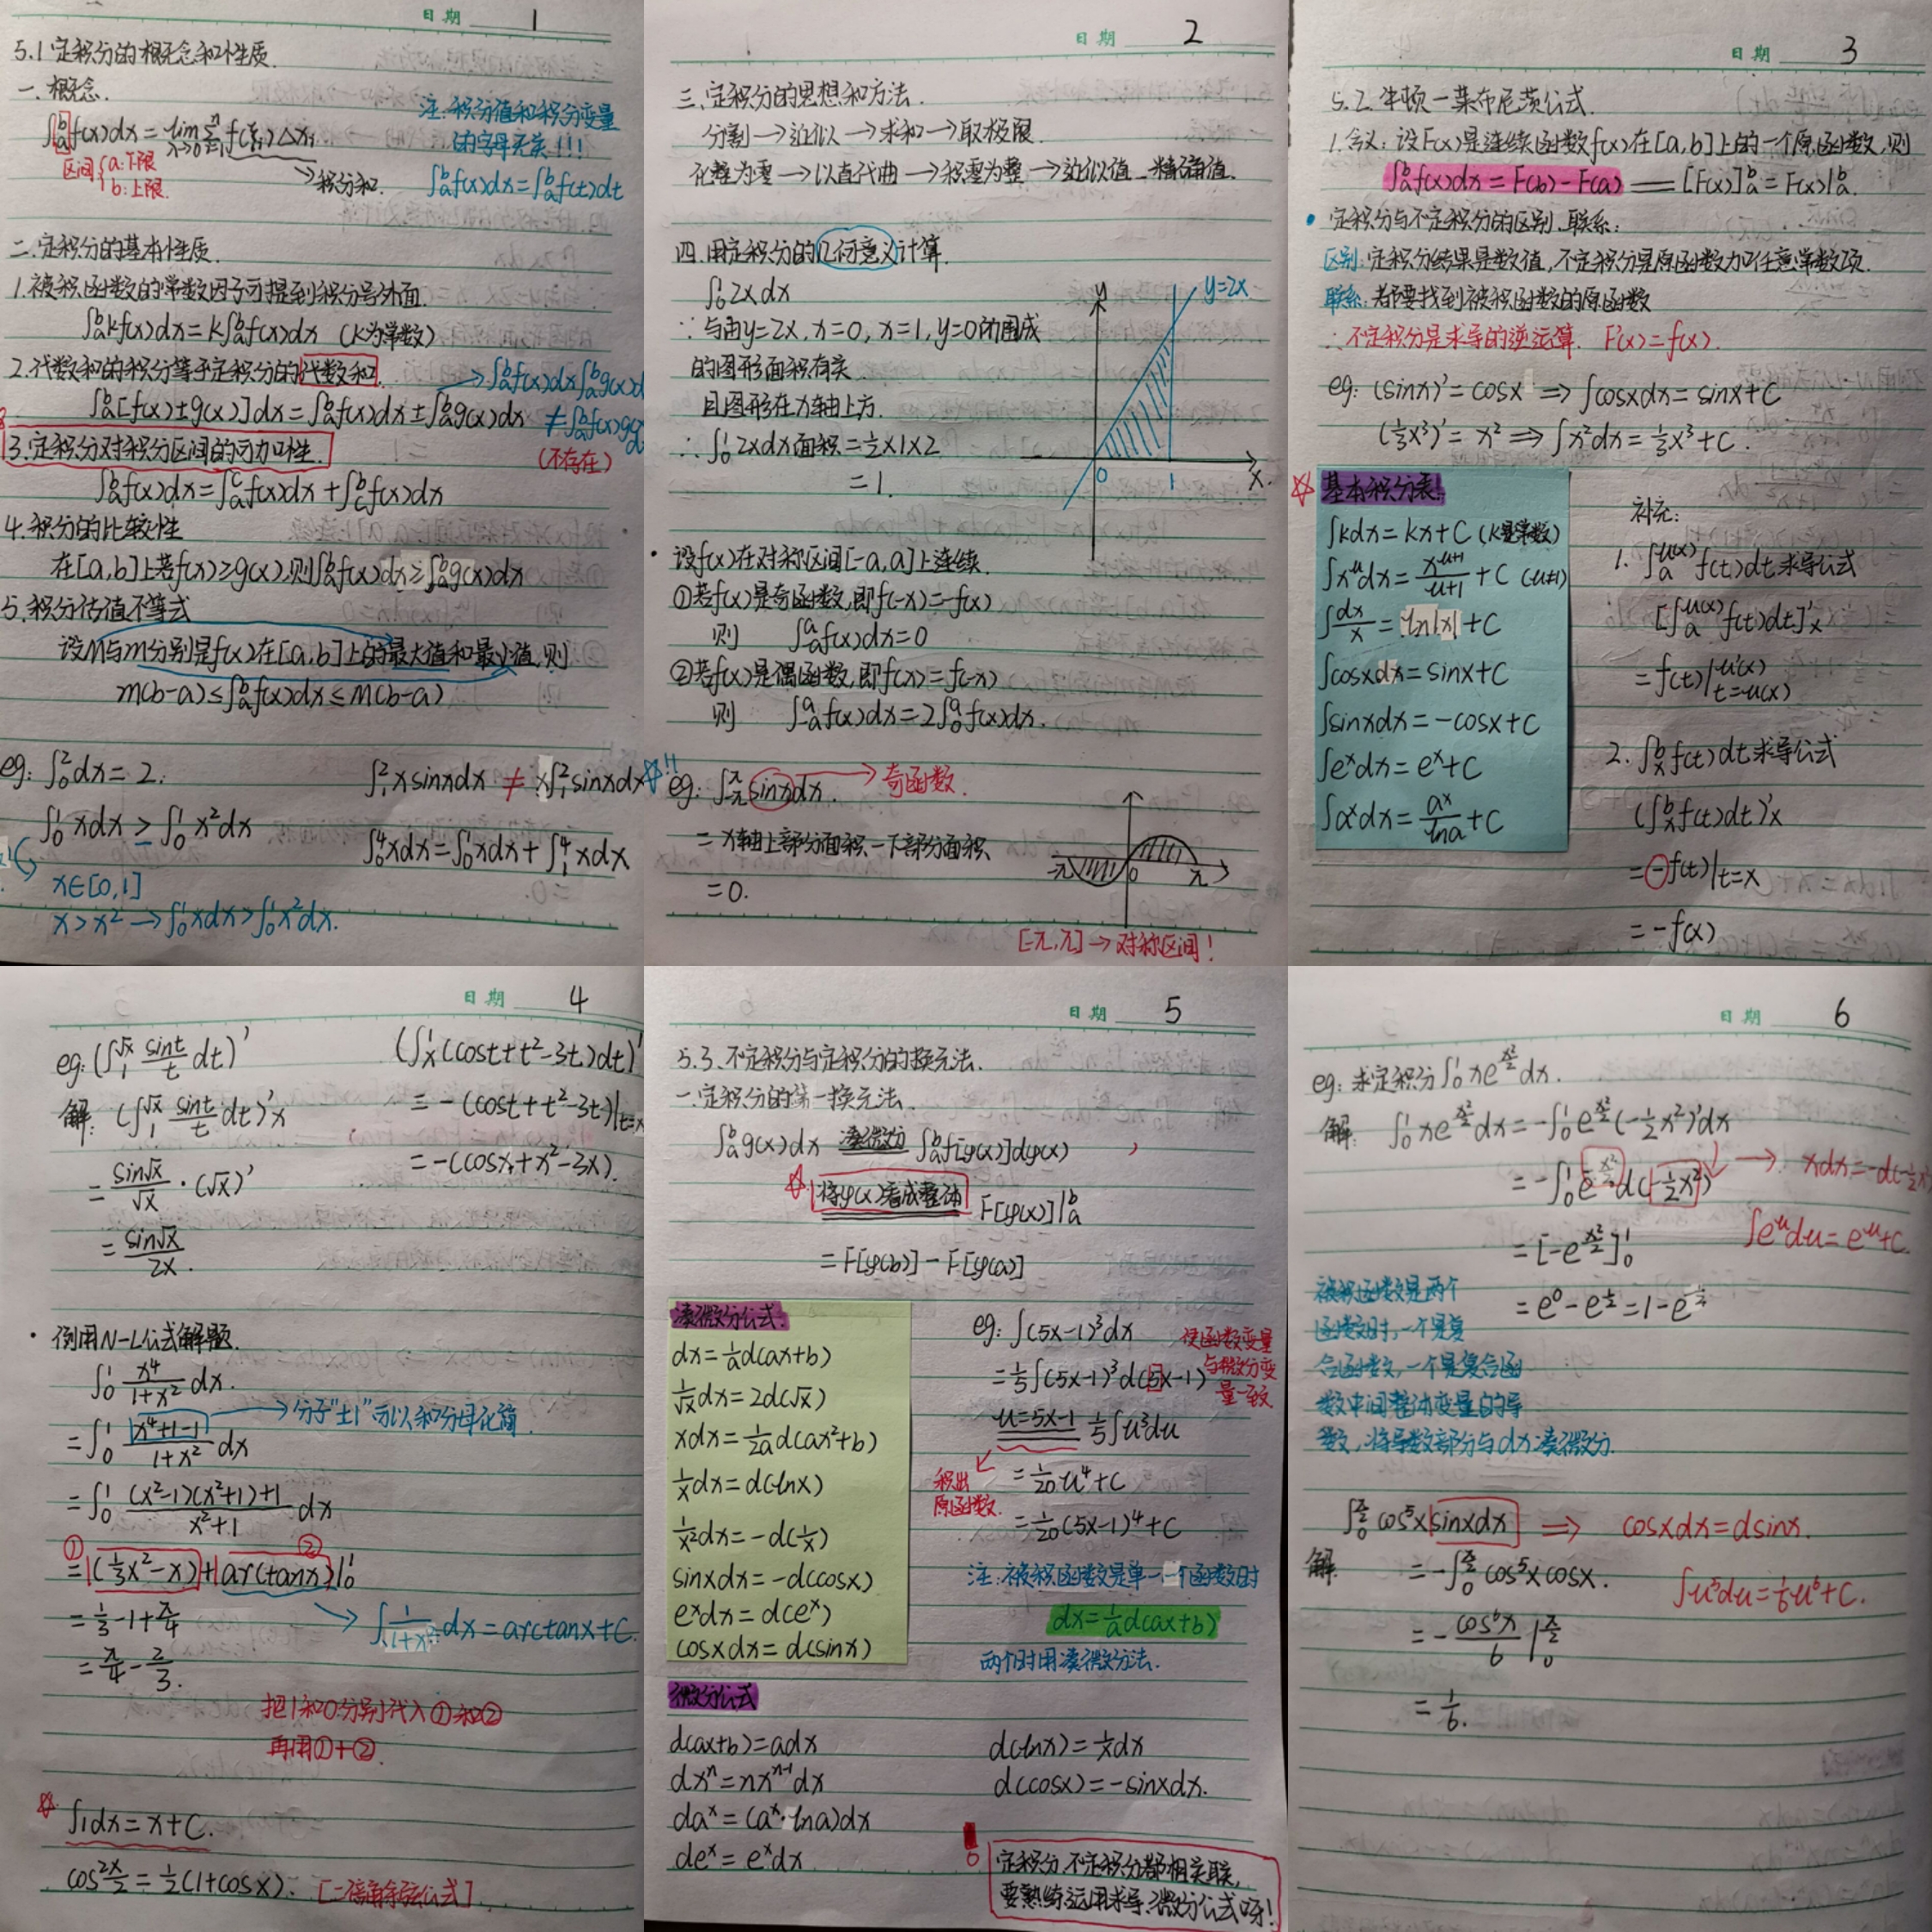 日期 1
5.1 定积分的概念和性质.
一. 概念.
∫_a^b f(x)dx = lim_{λ→0} Σ_{i=1}^n f(ξi)Δxi
→积分和.
区间{a:下限
b:上限.
注:积分值和积分变量
的字母无关!!!
∫_a^b f(x)dx=∫_a^b f(t)dt
二.定积分的基本性质.
1.被积函数的常数因子可提到积分号外面.
∫_a^b kf(x)dx=k∫_a^b f(x)dx (k为常数)
2.代数和的积分等于定积分的代数和.
∫_a^b [f(x)±g(x)]dx=∫_a^b f(x)dx±∫_a^b g(x)dx
→∫_a^b f(x)dx∫_a^b g(x)d
≠∫_a^b f(x)g(
(不存在)
3.定积分对积分区间的可加性.
∫_a^b f(x)dx=∫_a^c f(x)dx+∫_c^b f(x)dx
4.积分的比较性
在[a,b]上若f(x)≥g(x),则∫_a^b f(x)dx≥∫_a^b g(x)dx
5.积分估值不等式
设M与m分别是f(x)在[a,b]上的最大值和最小值,则
m(b-a)≤∫_a^b f(x)dx≤M(b-a)
eg: ∫_0^2 dx=2.
∫_1^2 xsinxdx ≠ x∫_1^2 sinxdx
∫_0^1 xdx ≥ ∫_0^1 x²dx
∫_0^4 xdx=∫_0^1 xdx+∫_1^4 xdx
x∈[0,1]
x>x²→∫_0^1 xdx>∫_0^1 x²dx.
日期 2
三、定积分的思想和方法.
分割→近似→求和→取极限.
化整为零→以直代曲→积零为整→近似值_精确值.
四.用定积分的几何意义计算.
∫_0^1 2xdx
∵与由y=2x, x=0, x=1, y=0所围成
的图形面积有关
且图形在x轴上方.
∴∫_0^1 2xdx面积=½×1×2
=1.
y
y=2x
0 1 x.
·设f(x)在对称区间[-a,a]上连续.
①若f(x)是奇函数,即f(-x)=-f(x)
则 ∫_{-a}^a f(x)dx=0
②若f(x)是偶函数,即f(x)=f(-x)
则 ∫_{-a}^a f(x)dx=2∫_0^a f(x)dx.
☆!! eg: ∫_{-π}^π sinxdx. →奇函数.
=x轴上部分面积-下部分面积
=0.
-π 0 π
[-π,π]→对称区间!
日期 3
5.2 牛顿-莱布尼茨公式.
1.含义:设F(x)是连续函数f(x)在[a,b]上的一个原函数,则
∫_a^b f(x)dx=F(b)-F(a)=[F(x)]_a^b=F(x)|_a^b.
·定积分与不定积分的区别、联系:
区别:定积分结果是数值,不定积分是原函数加任意常数项.
联系:都要找到被积函数的原函数
∴不定积分是求导的逆运算. F'(x)=f(x).
eg: (sinx)'=cosx ⇒ ∫cosxdx=sinx+C
(⅓x³)'=x² ⇒ ∫x²dx=⅓x³+C.
☆ 基本积分表:
∫kdx=kx+C (k是常数)
∫x^u dx=x^{u+1}/(u+1)+C (u≠1)
∫dx/x=ln|x|+C
∫cosxdx=sinx+C
∫sinxdx=-cosx+C
∫e^x dx=e^x+C
∫a^x dx=a^x/lna+C
补充:
1. ∫_a^{u(x)} f(t)dt求导公式
[∫_a^{u(x)} f(t)dt]'x
=f(t)|_{t=u(x)}^{u'(x)}
2. ∫_x^b f(t)dt求导公式
(∫_x^b f(t)dt)'x
=-f(t)|t=x
=-f(x)
日期 4
eg: (∫_1^{√x} sint/t dt)'
解: (∫_1^{√x} sint/t dt)'x
=sin√x/√x·(√x)'
=sin√x/2x.
(∫_x^1 (cost+t²-3t)dt)'
=-(cost+t²-3t)|t=x
=-(cosx+x²-3x).
·利用N-L公式解题.
∫_0^1 x⁴/(1+x²) dx.
=∫_0^1 (x⁴+1-1)/(1+x²) dx
→分子"±1"可以和分母化简.
=∫_0^1 ((x²-1)(x²+1)+1)/(x²+1) dx
① ②
=(⅓x²-x)+(arctanx)|_0^1
=⅓-1+π/4
→∫1/(1+x²) dx=arctanx+C.
=π/4-2/3.
把1和0分别代入①和②
再用①+②.
☆ ∫1dx=x+C.
cos²x/2=½(1+cosx). [二倍角余弦公式].
日期 5
5.3.不定积分与定积分的换元法.
一.定积分的第一换元法.
∫_a^b g(x)dx 凑微分 ∫_a^b f[φ(x)]dφ(x)
☆ 将φ(x)看成整体 F[φ(x)]|_a^b
=F[φ(b)]-F[φ(a)]
凑微分公式:
dx=1/a d(ax+b)
1/√x dx=2d(√x)
xdx=1/2a d(ax²+b)
1/x dx=d(lnx)
1/x² dx=-d(1/x)
sinxdx=-d(cosx)
e^x dx=d(e^x)
cosxdx=d(sinx)
eg: ∫(5x-1)³dx
=⅕∫(5x-1)³d(5x-1)
使函数变量
与微分变
量一致.
u=5x-1 ⅕∫u³du
积出
原函数.
=1/20 u⁴+C
=1/20(5x-1)⁴+C
注:被积函数是单一一个函数时
dx=1/a d(ax+b)
两个时用凑微分法.
微分公式
d(ax+b)=adx
dxⁿ=nx^{n-1}dx
da^x=(a^x·lna)dx
de^x=e^x dx
d(lnx)=1/x dx
d(cosx)=-sinxdx.
定积分、不定积分都相关联,
要熟练运用求导、微分公式呀!
日期 6
eg: 求定积分∫_0^1 xe^{x²/2}dx.
解: ∫_0^1 xe^{x²/2}dx=-∫_0^1 e^{x²/2}(-½x²)'dx
=-∫_0^1 e^{-x²/2}d(-½x²) → xdx=-d(-½x²
=[-e^{x²/2}]_0^1
∫e^u du=e^u+C.
=e⁰-e^{½}=1-e^{-½}
被积函数是两个
函数时,一个是复
合函数,一个是复合函
数中间整体变量的导
数,将导数部分与dx凑微分.
∫_0^{π/2} cos⁵x sinxdx ⇒ cosxdx=dsinx.
解: =-∫_0^{π/2} cos⁵xcosx.
∫u⁵du=⅙u⁶+C.
=-cos⁶x/6|_0^{π/2}
=1/6.